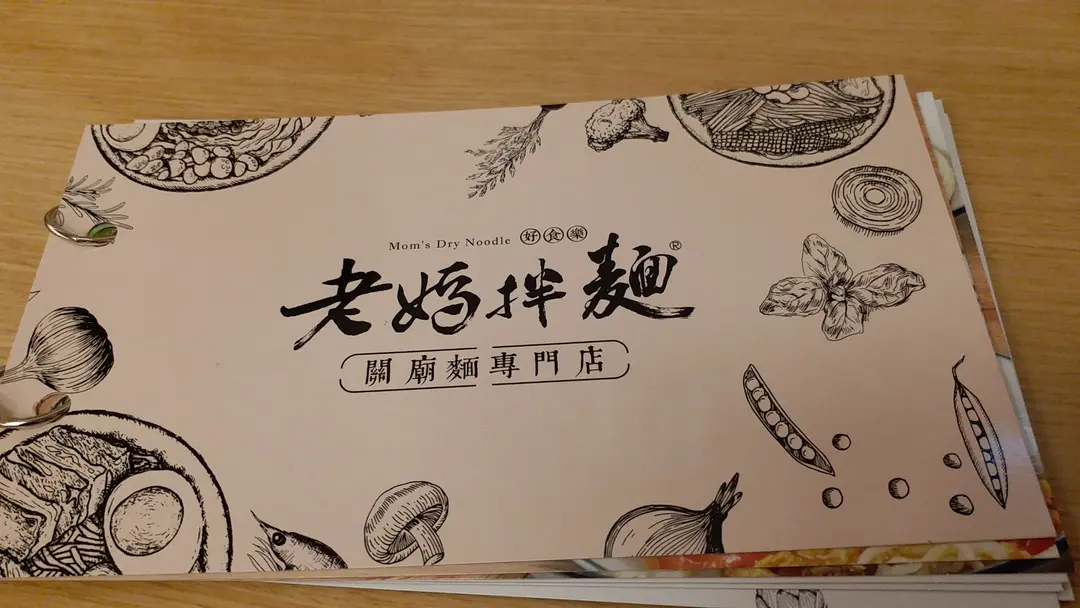 Mom's Dry Noodle 好食樂
老媽拌麵®
關廟麵專門店